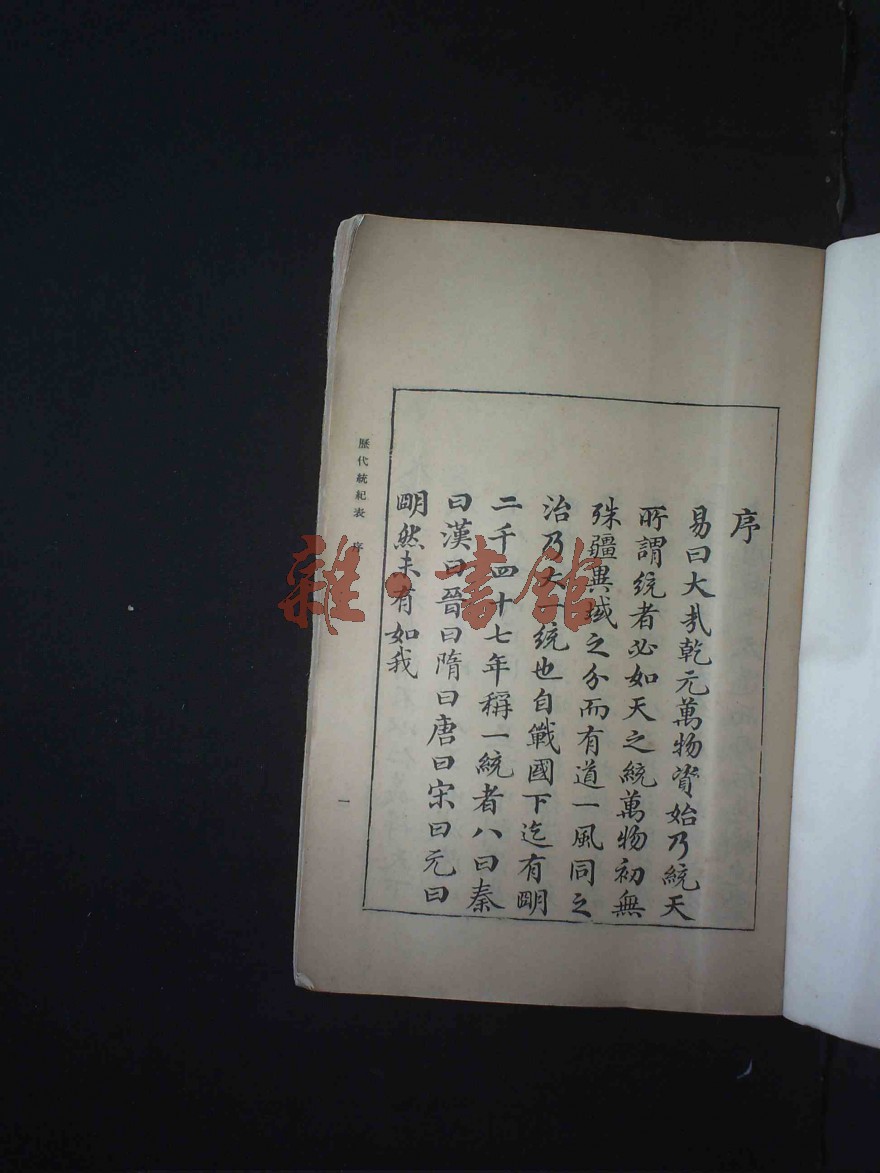 序
易曰大哉乾元萬物資始乃統天
所謂統者必如天之統萬物初無
殊疆異域之分而有道一風同之
治乃大一統也自戰國下迄有明
二千四十七年稱一統者八曰秦
曰漢曰晉曰隋曰唐曰宋曰元曰
明然未有如我
歷代統紀表 序
一
雜·書館